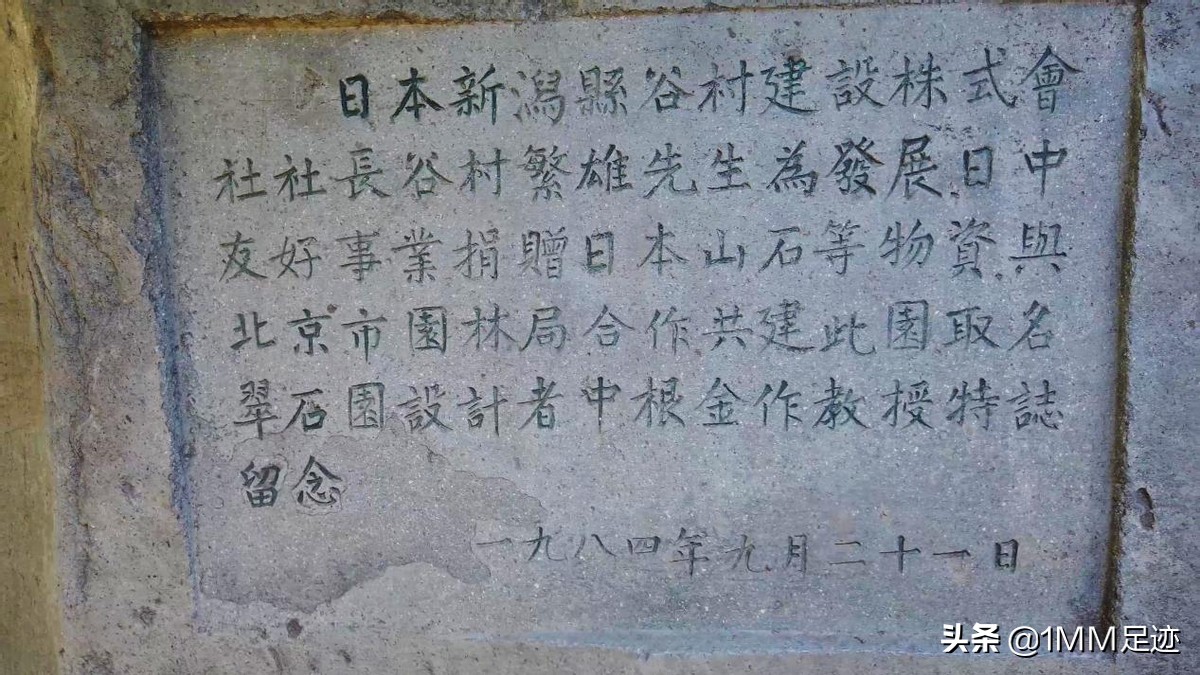 日本新潟縣谷村建設株式會
社社長谷村繁雄先生為發展日中
友好事業捐贈日本山石等物資與
北京市園林局合作共建此園取名
翠石園設計者中根金作教授特誌
留念
一九八四年九月二十一日
头条 @1MM足迹